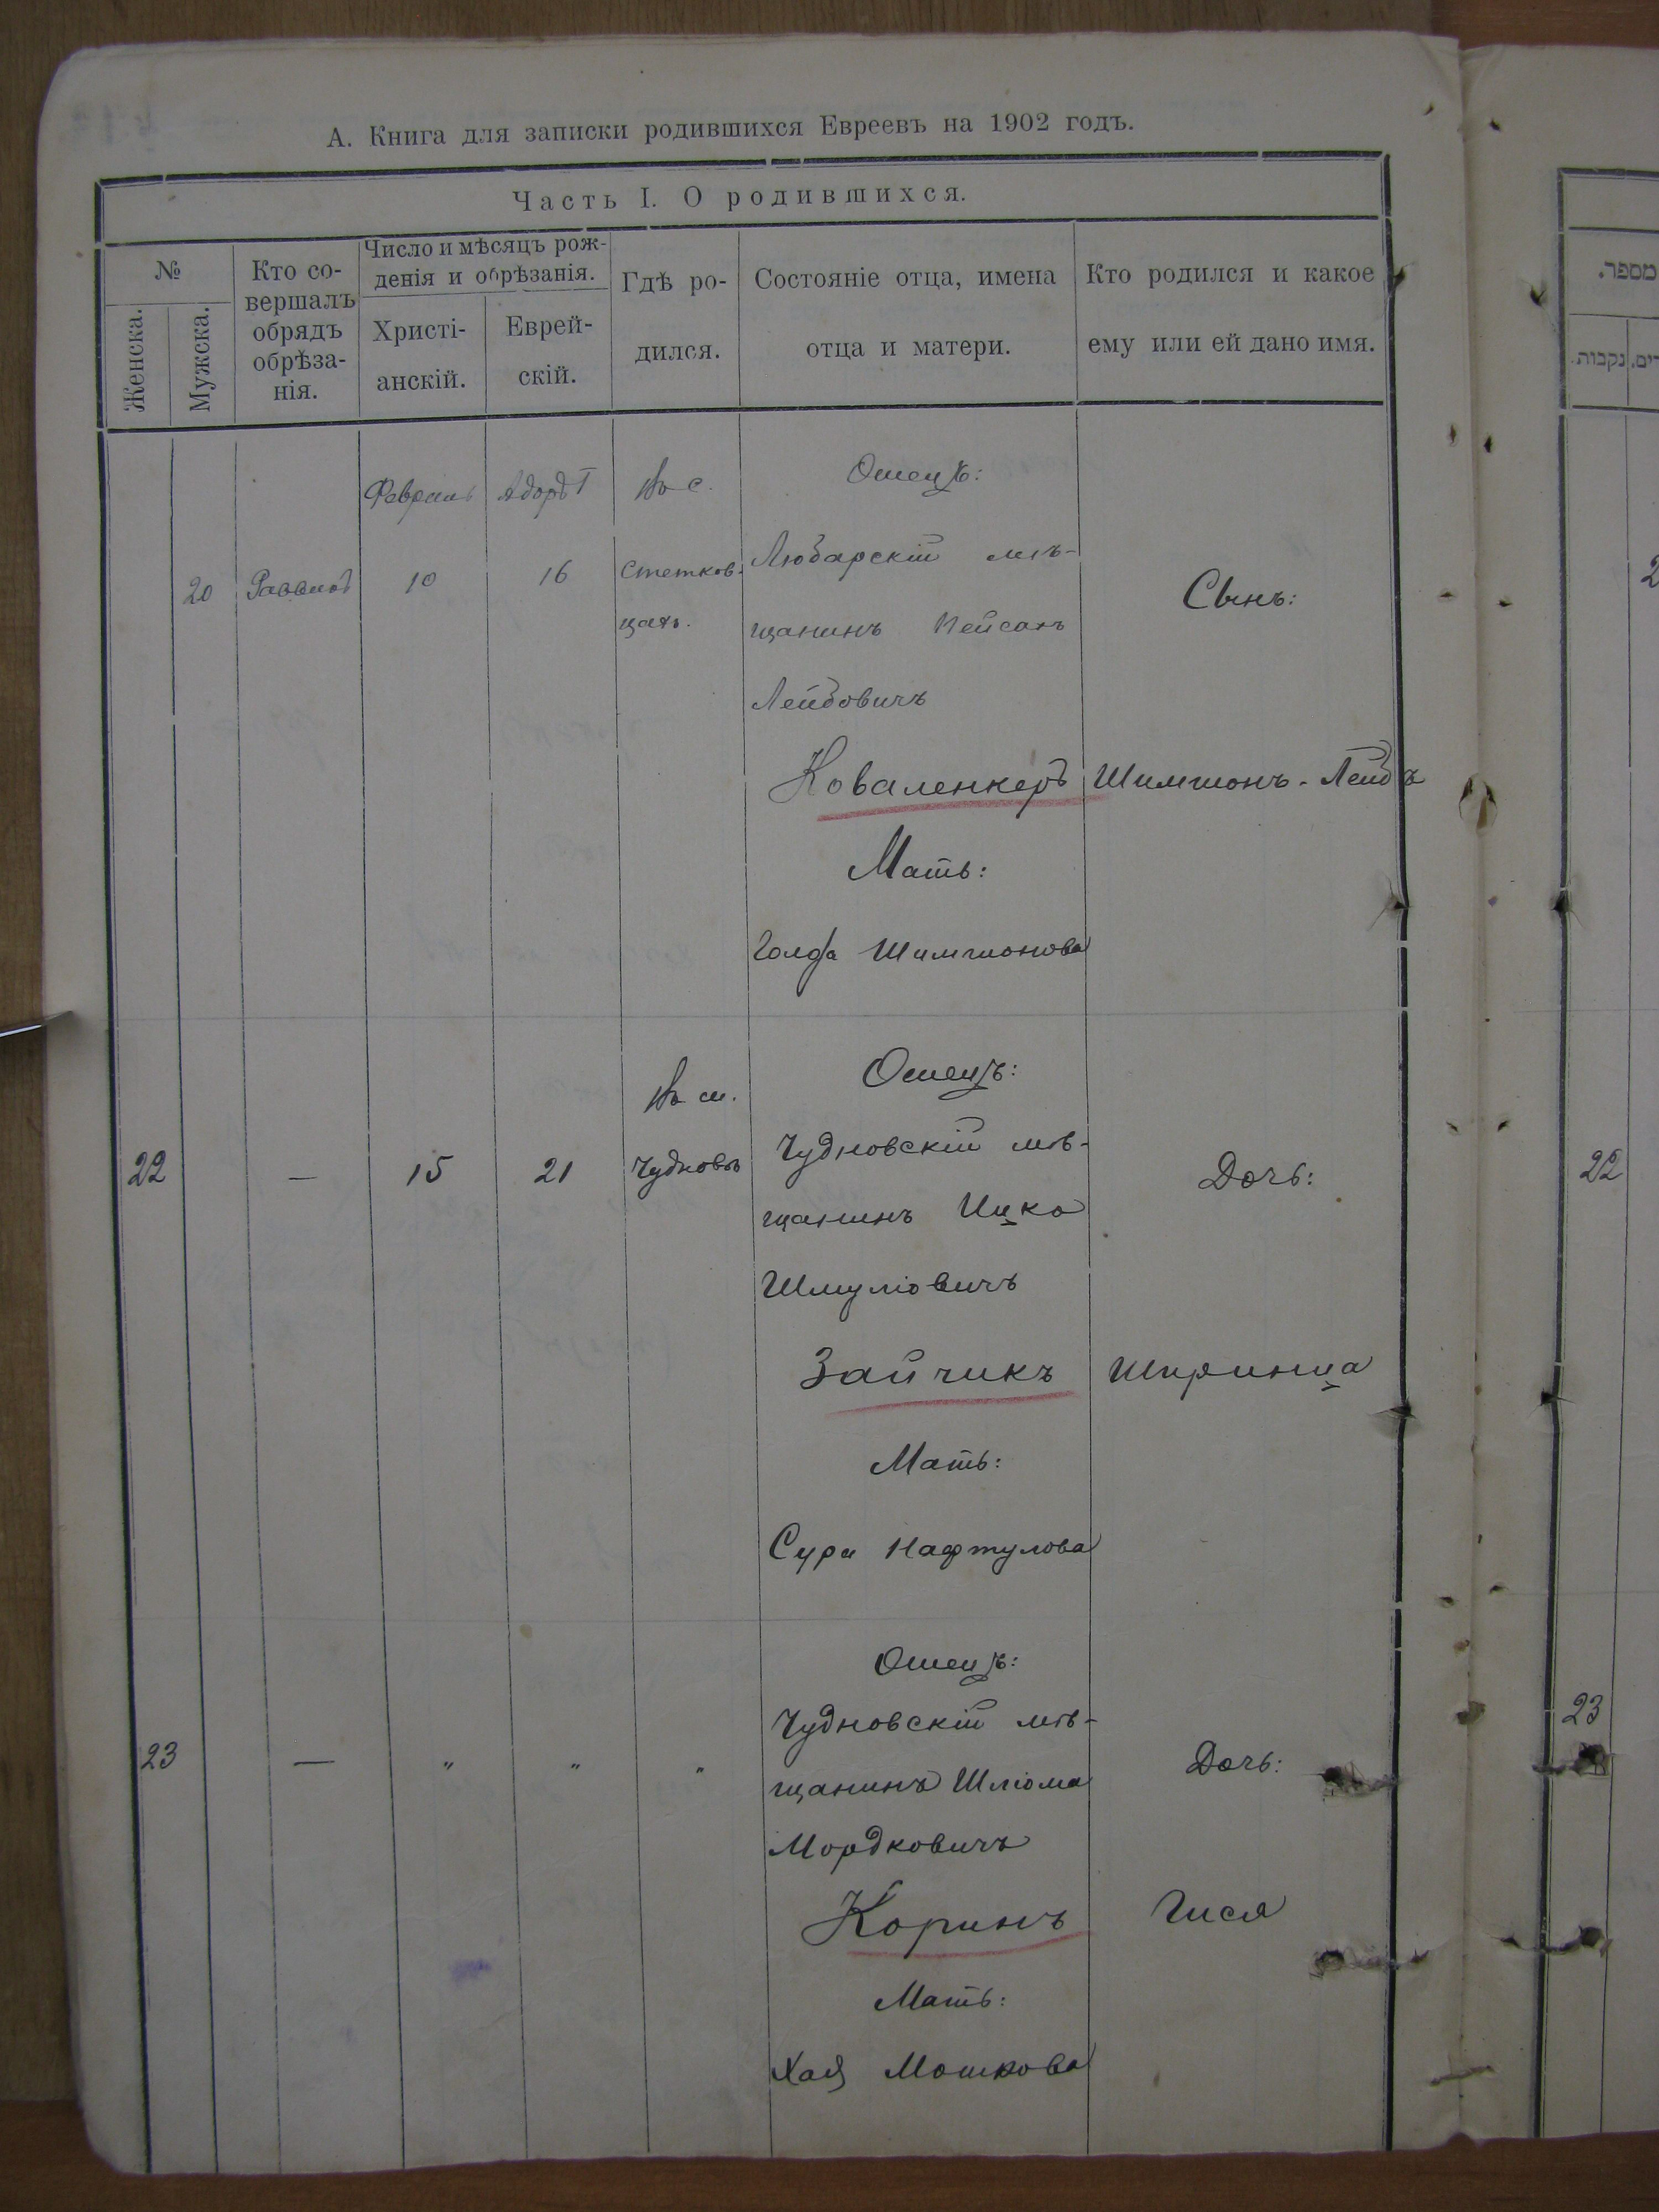 А. Книга для записки родившихся Евреевъ на 1902 годъ.
Часть I. О родившихся.
№
Женска.
Мужска.
Кто со-
вершалъ
обрядъ
обрѣза-
нія.
Число и мѣсяцъ рож-
денія и обрѣзанія.
Христі-
анскій.
Еврей-
скій.
Гдѣ ро-
дился.
Состояніе отца, имена
отца и матери.
Кто родился и какое
ему или ей дано имя.
20
Февраль
10
Адоръ I
16
Въ с.
Стетков-
цахъ.
Отецъ:
Любарскій мѣ-
щанинъ Пейсахъ
Лейбовичъ
Коваленкеръ
Мать:
Голда Шимшонова
Сынъ:
Шимшонъ-Лейбъ
22
—
15
21
Въ м.
Чудновѣ
Отецъ:
Чудновскій мѣ-
щанинъ Ицко
Шмуліовичъ
Зайчикъ
Мать:
Сура Нафтулова
Дочь:
Шпринца
23
—
"
"
"
Отецъ:
Чудновскій мѣ-
щанинъ Шліома
Мордковичъ
Коринъ
Мать:
Хая Мошкова
Дочь:
Гися
מספר.
נקבות.
22
23